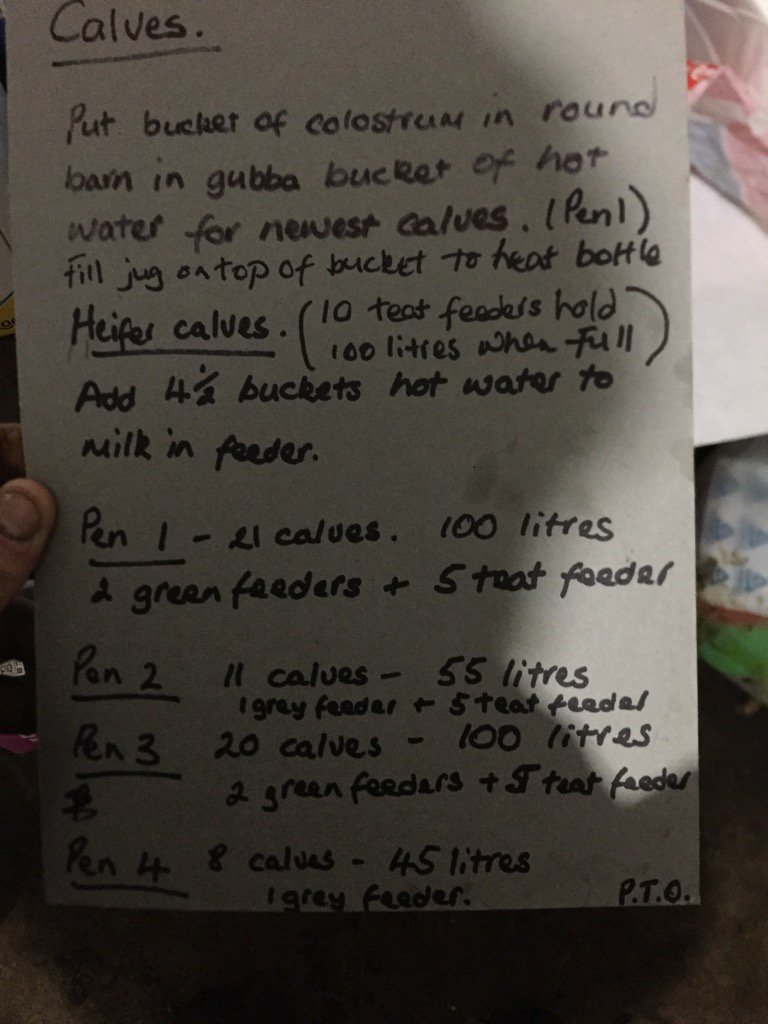 Calves.
Put bucket of colostrum in round
barn in gubba bucket of hot
water for newest calves. (Pen 1)
Fill jug on top of bucket to heat bottle
Heifer calves. (10 teat feeders hold
100 litres when full)
Add 4½ buckets hot water to
milk in feeder.
Pen 1 - 21 calves. 100 litres
2 green feeders + 5 teat feeder
Pen 2 11 calves - 55 litres
1 grey feeder + 5 teat feeder
Pen 3 20 calves - 100 litres
2 green feeders + 5 teat feeder
Pen 4 8 calves - 45 litres
1 grey feeder.
P.T.O.